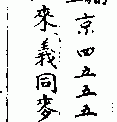 京四五五五
來義同麥